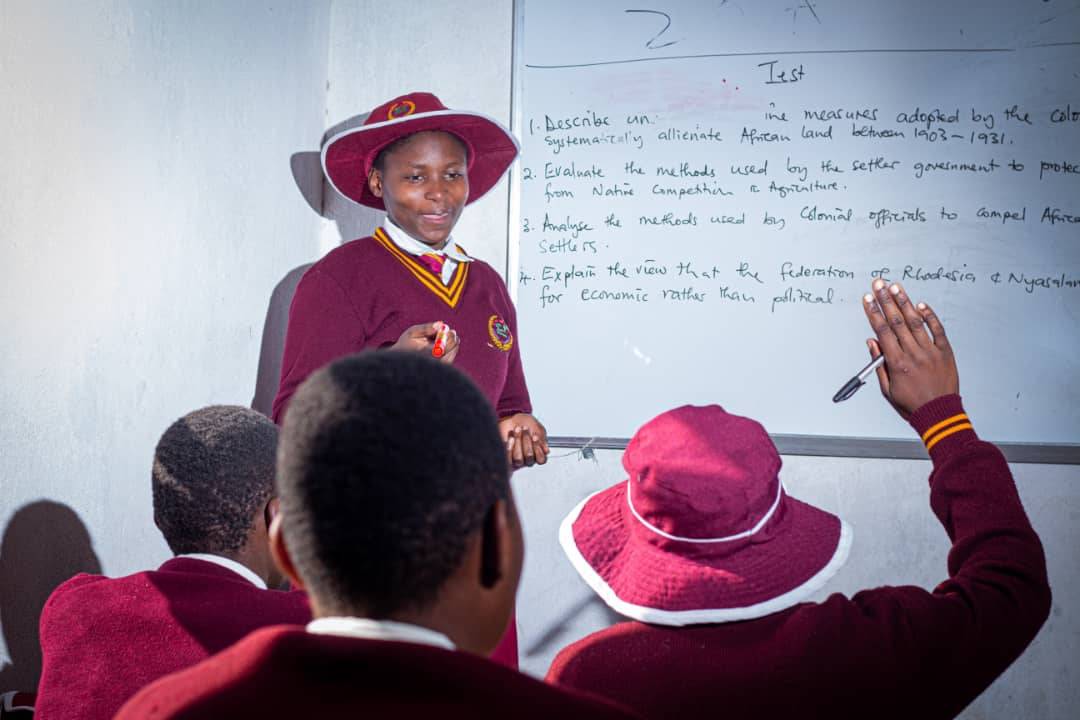 2
Test
1. Describe un. ine measures adopted by the colo
systematically allienate African land between 1903 - 1931.
2. Evaluate the methods used by the settler government to protec
from Native Competition in Agriculture.
3. Analyse the methods used by Colonial officials to compel Africa
Settlers.
4. Explain the view that the federation of Rhodesia & Nyasalan
for economic rather than political.